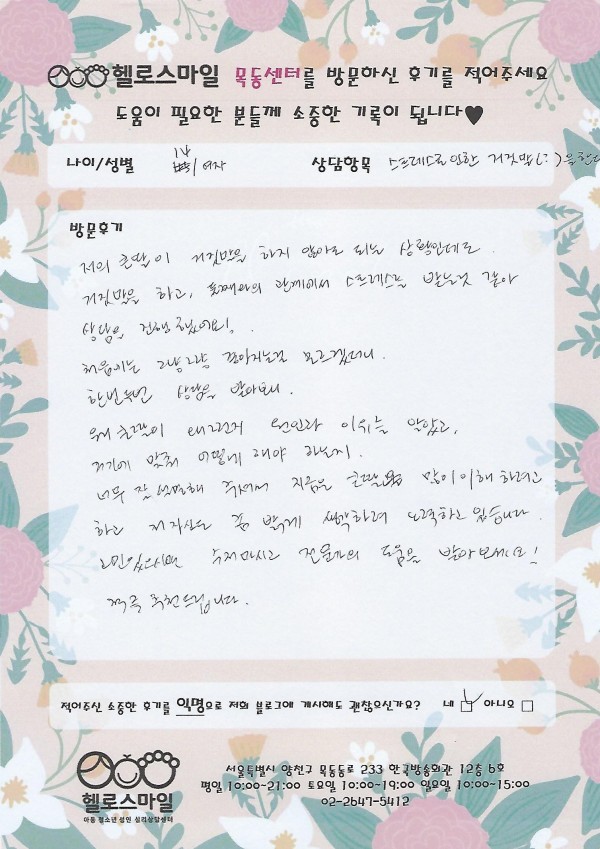 헬로스마일 목동센터를 방문하신 후기를 적어주세요
도움이 필요한 분들께 소중한 기록이 됩니다♥
나이/성별 14 / 여자 상담항목 스트레스로 인한 거짓말(?)을 한다
방문후기
저의 큰딸이 거짓말을 하지 않아도 되는 상황인데도
거짓말을 하고, 와의 관계에서 스트레스를 받는것 같아
상담을 진행했어요!.
처음에는 그냥그냥 모르겠더니
한번두번 상담을 받아보니.
왜 큰딸이 왜그런지 원인과 이유를 알았고,
거기에 맞춰 어떻게 해야 하는지
너무 잘 설명해 주셔서 지금은 큰딸을 많이 이해하려고
하고 저 자신도 좀 밝게 생각하려 노력하고 있습니다.
고민있으시면 주저마시고 전문가의 도움을 받아보세요!
적극 추천드립니다.
적어주신 소중한 후기를 익명으로 저희 블로그에 게시해도 괜찮으신가요? 네 ☑ 아니오 □
헬로스마일
아동 청소년 성인 심리상담센터
서울특별시 양천구 목동동로 233 한국방송회관 12층 6호
평일 10:00~21:00 토요일 10:00~19:00 일요일 10:00~15:00
02-2647-5412